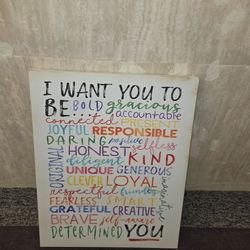 I WANT YOU TO
BE... BOLD gracious
accountable
connected PRESENT
JOYFUL RESPONSIBLE
DARING positive selfless
ORIGINAL HONEST
diligent KIND
UNIQUE GENEROUS
CLEVER LOYAL
respectful humble
FEARLESS SMART
GRATEFUL CREATIVE
BRAVE self-aware
DETERMINED YOU